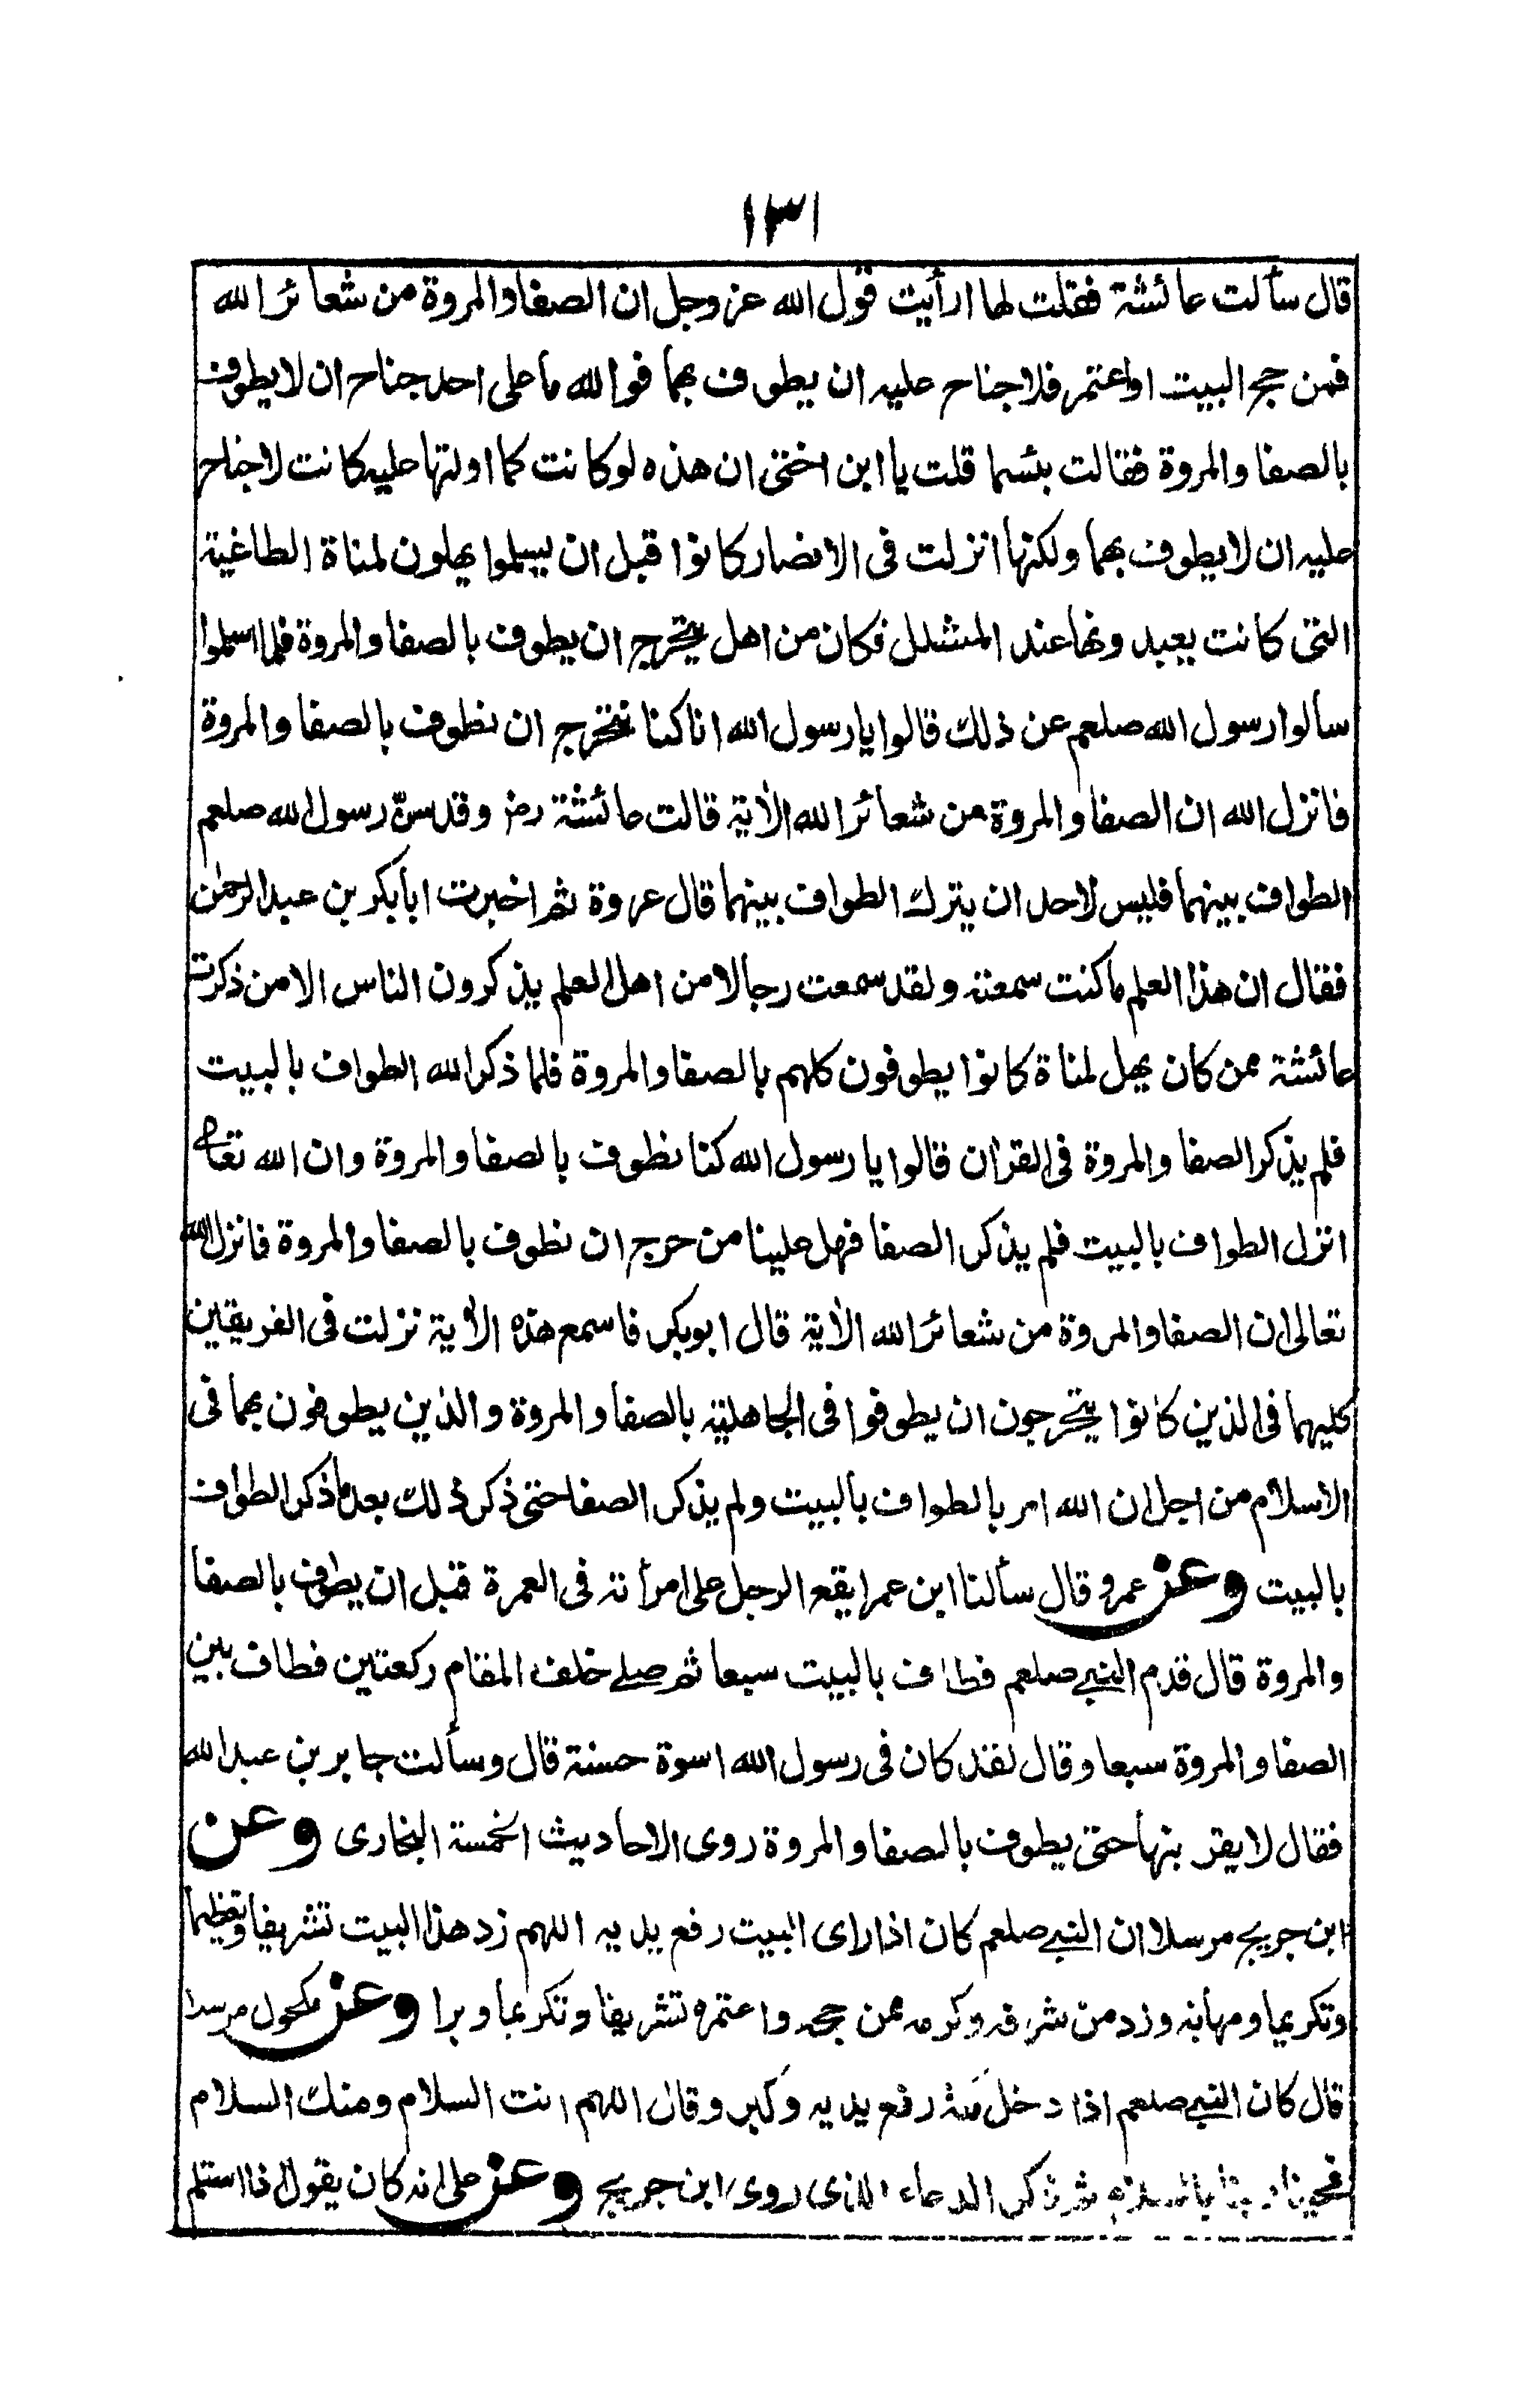 ١٣١
قال سألت عائشة فقلت لها ارأيت قول الله عز وجل ان الصفا والمروة من شعائر الله
فمن حج البيت او اعتمر فلا جناح عليه ان يطوف بهما فوالله ما على احد جناح ان لا يطوف
بالصفا والمروة فقالت بئسما قلت يا ابن اختى ان هذه لو كانت كما اولتها عليه كانت لا جناح
عليه ان لا يطوف بهما ولكنها انزلت فى الانصار كانوا قبل ان يسلموا يهلون لمناة الطاغية
التى كانت يعبدونها عند المشلل فكان من اهل يتحرج ان يطوف بالصفا والمروة فلما اسلموا
سألوا رسول الله صلعم عن ذلك قالوا يا رسول الله انا كنا نتحرج ان نطوف بالصفا والمروة
فانزل الله ان الصفا والمروة من شعائر الله الآية قالت عائشة رض وقد سنّ رسول الله صلعم
الطواف بينهما فليس لاحد ان يترك الطواف بينهما قال عروة ثم اخبرت ابا بكر بن عبد الرحمن
فقال ان هذا العلم ما كنت سمعته ولقد سمعت رجالا من اهل العلم يذكرون الناس الا من ذكرت
عائشة ممن كان يهل لمناة كانوا يطوفون كلهم بالصفا والمروة فلما ذكر الله الطواف بالبيت
فلم يذكر الصفا والمروة فى القران قالوا يا رسول الله كنا نطوف بالصفا والمروة وان الله تعالى
انزل الطواف بالبيت فلم يذكر الصفا فهل علينا من حرج ان نطوف بالصفا والمروة فانزل الله
تعالى ان الصفا والمروة من شعائر الله الآية قال ابو بكر فاسمع هذه الآية نزلت فى الفريقين
كليهما فى الذين كانوا يتحرجون ان يطوفوا فى الجاهلية بالصفا والمروة والذين يطوفون بهما فى
الاسلام من اجل ان الله امر بالطواف بالبيت ولم يذكر الصفا حتى ذكر ذلك بعد ما ذكر الطواف
بالبيت وعن عمرو قال سألنا ابن عمر ايقع الرجل على امرأته فى العمرة قبل ان يطوف بالصفا
والمروة قال قدم النبي صلعم فطاف بالبيت سبعا ثم صلى خلف المقام ركعتين فطاف بين
الصفا والمروة سبعا وقال لقد كان فى رسول الله اسوة حسنة قال وسألت جابر بن عبد الله
فقال لا يقربنها حتى يطوف بالصفا والمروة روى الاحاديث الخمسة البخارى وعن
ابن جريج مرسلا ان النبي صلعم كان اذا راى البيت رفع يديه اللهم زد هذا البيت تشريفا وتعظيما
وتكريما ومهابة وزد من شرفه وكرمه ممن حجه واعتمره تشريفا وتكريما وبرا وعن مكحول مرسلا
قال كان النبي صلعم اذا دخل مكة رفع يديه وكبر وقال اللهم انت السلام ومنك السلام
فحينا ربنا بالسلام ثم ذكر الدعاء الذى روى ابن جريج وعن على انه كان يقول اذا استلم